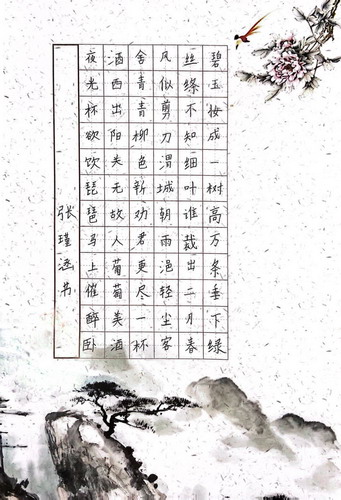 碧玉妆成一树高万条垂下绿
丝绦不知细叶谁裁出二月春
风似剪刀渭城朝雨浥轻尘客
舍青青柳色新劝君更尽一杯
酒西出阳关无故人葡萄美酒
夜光杯欲饮琵琶马上催醉卧
张瑾涵书